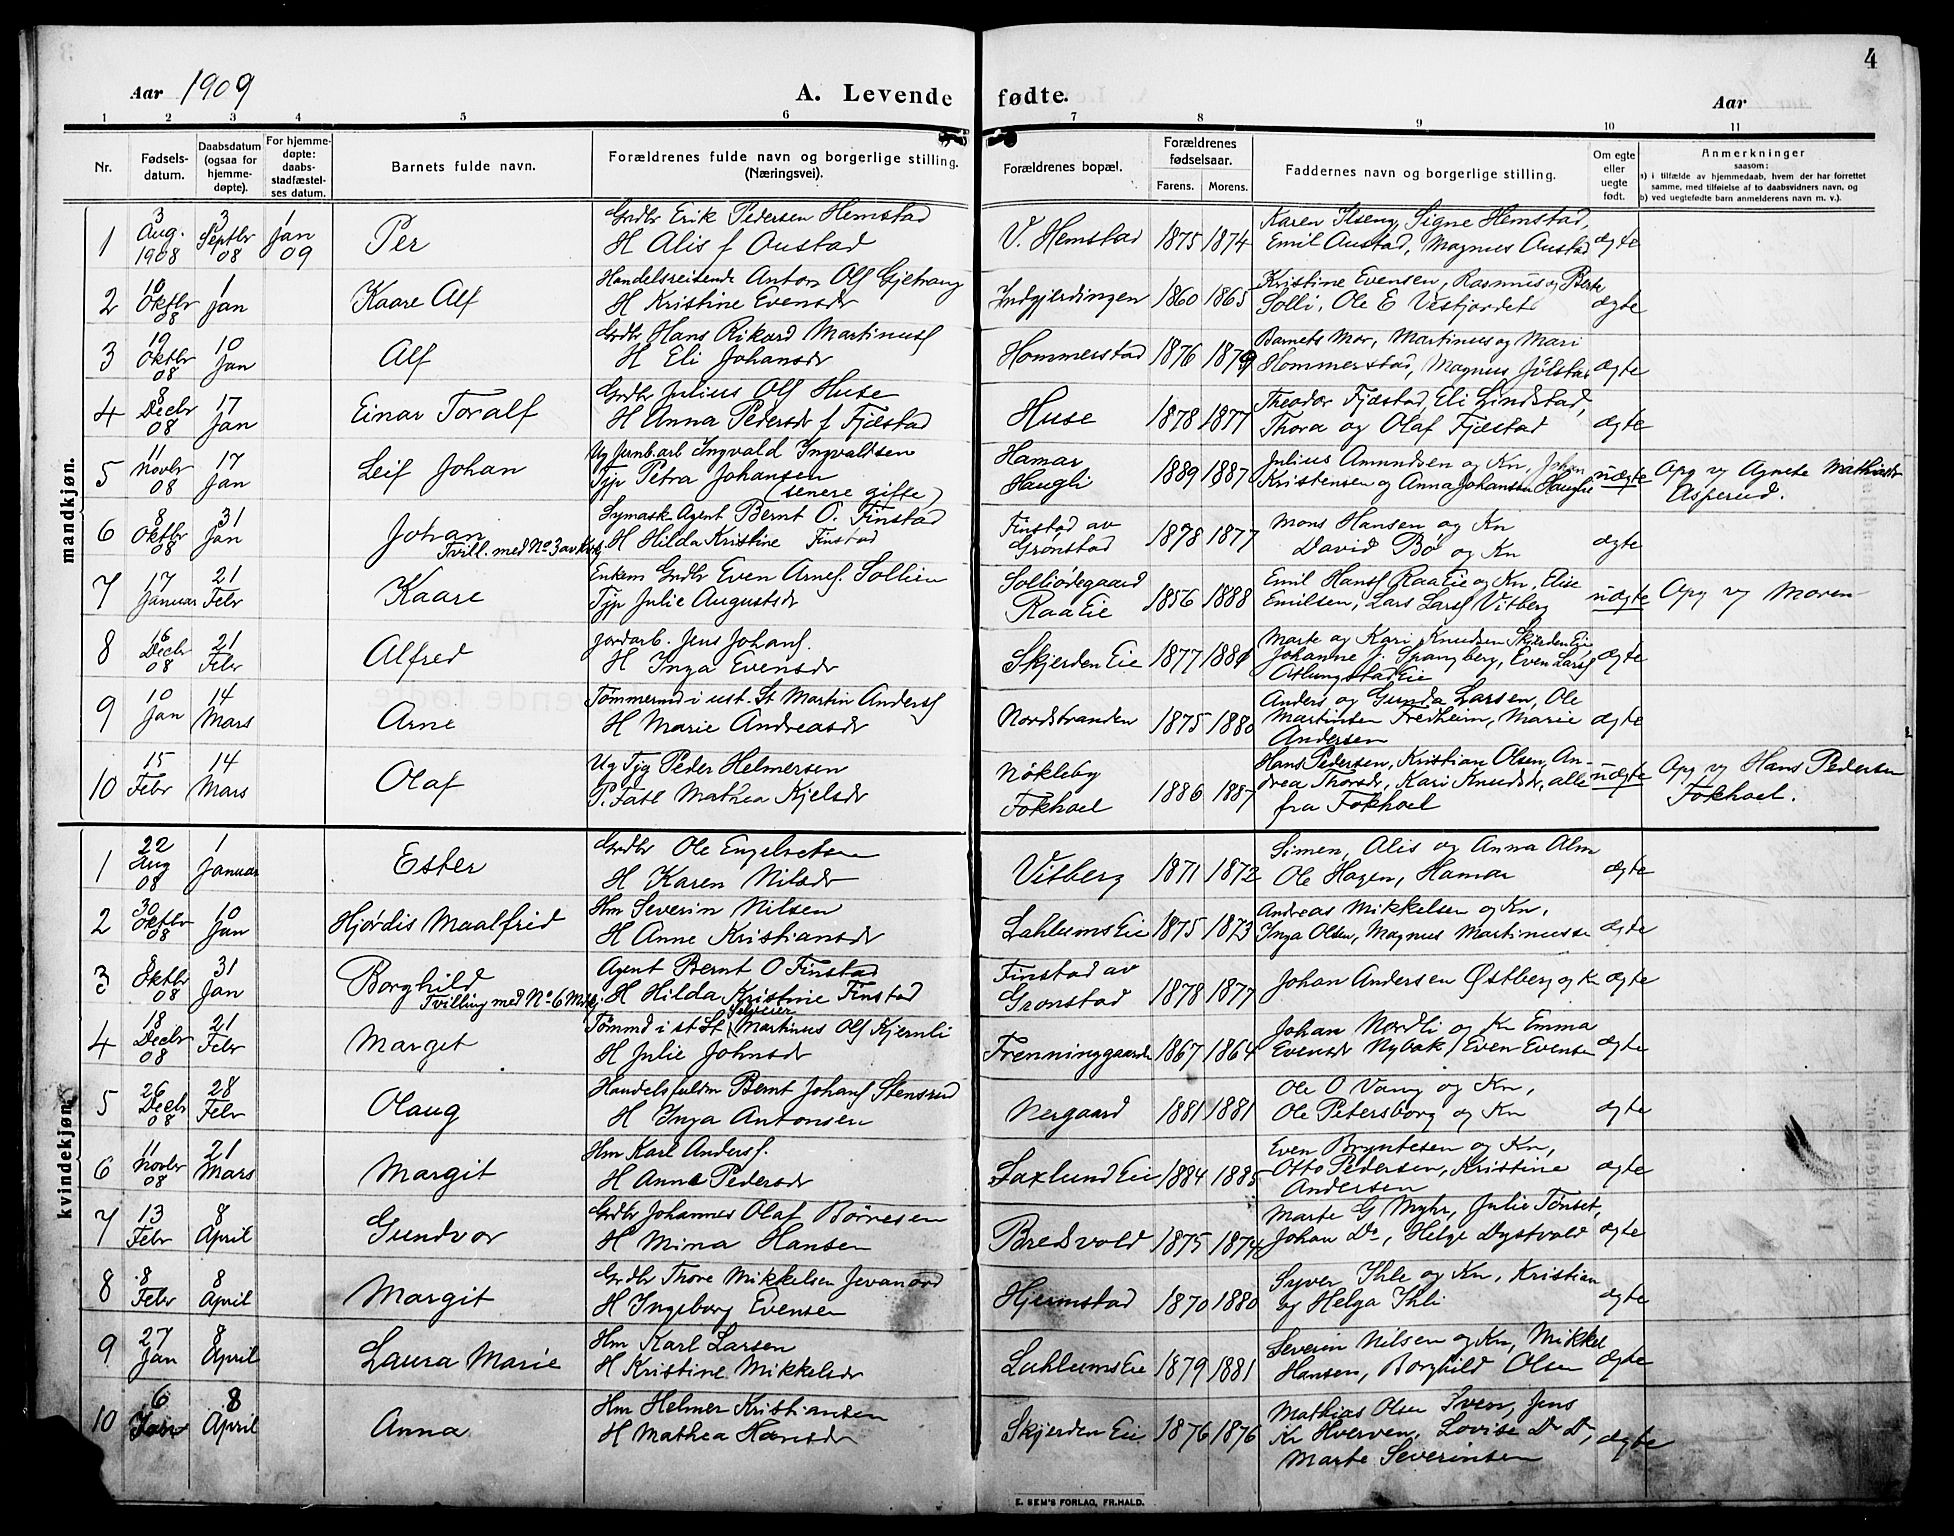 4
Aar 1909
A. Levende fødte.
Aar
1 2 3 4 5 6 7 8 9 10 11
Nr.
Fødsels-
datum.
Daabsdatum
(ogsaa for
hjemme-
døpte).
For hjemme-
døpte:
daabs-
stadfæstel-
ses datum.
Barnets fulde navn.
Forældrenes fulde navn og borgerlige stilling.
(Næringsvei).
Forældrenes bopæl.
Forældrenes
fødselsaar.
Farens. Morens.
Faddernes navn og borgerlige stilling.
Om egte
eller
uegte
født.
Anmerkninger
saasom:
a) i tilfælde av hjemmedaab, hvem der har forrettet
samme, med tilføielse af to daabsvidners navn, og
b) ved uegtefødte barn anmelderens navn m. v.).
mandkjøn.
1
3 Aug. 1908
3 Septbr 08
1 Jan 09
Per
Grdbr Erik Pedersen Hemstad
H Alis f Austad
V. Hemstad 1875 1874
Karen Ilseng, Signe Hemstad,
Emil Austad, Magnus Austad
ægte
2
10 Oktbr 08
1 Jan
Kaare Alf
Handelsreisende Anton Olf Gjetvang
H Kristine Evensdr
Indgjerdingen 1860 1865
Kristine Evensen, Rasmus og Berte
Solli, Ole E Vestjordet
ægte
3
19 Oktbr 08
10 Jan
Alf
Grdbr Hans Rikard Martinusf
H Eli Johansdr
Hommerstad 1876 1879
Barnets Mor, Martinus og Mari
Hommerstad, Magnus Jølstad
ægte
4
8 Decbr 08
17 Jan
Einar Toralf
Grdbr Julius Olf Huse
H Anna Pedersdr f Fjæstad
Huse 1878 1877
Theodor Fjæstad, Eli Lindstad,
Thora og Olaf Fjæstad
ægte
5
11 Novbr 08
17 Jan
Leif Johan
Ug Jernb.arb Ingvald Ingvaldsen
Tjp Petra Johansen
(senere gifte)
Hamar
Haugli
1889 1887
Julius Amundsen og Kn, Johan
Kristensen og Anna Johansen Haugli
uægte
Opg v Agnete Mathiasdr
Asperud.
6
8 Oktbr 08
31 Jan
Johan
Tvill. med No 3 av kvk
Symask. Agent Bernt O. Finstad
H Hilda Kristine Finstad
Finstad av
Grønstad
1878 1877
Mons Hansen og Kn
David Bø og Kn
ægte
7
17 Januar
21 Febr
Kaare
Enkem Grdbr Even Arnesf. Sollien
Tjp Julie Augustsdr
Solliødegaard
Raa Eie
1856 1888
Emil Hansf Raa Eie og Kn, Elise
Emilsen, Lars Larsf Vitberg
uægte
Opg v Moren
8
16 Decbr 08
21 Febr
Alfred
Jordarb. Jens Johansf.
H Inga Evensdr
Skjerden Eie 1877 1881
Marte og Kari Knudsen Skjerden Eie
Johanne J. Spangberg, Even Larsf
Atlungstad Eie
ægte
9
10 Jan
14 Mars
Arne
Tømmermd i ust. St Martin Andersf
H Marie Andreasdr
Nordstranden 1875 1880
Anders og Gunda Larsen, Ole
Martinsen Fredheim, Marie
Andersen
ægte
10
15 Febr
14 Mars
Olaf
Ug Tjg Peder Helmersen
P. Tatl Mathea Kjelsdr
Nøkleby
Fokhoel
1886 1887
Hans Pedersen, Kristian Olsen, An-
drea Thorsdr, Kari Knudsdr, alle
fra Fokhoel
uægte
Opg v Hans Pedersen
Fokhoel.
kvindekjøn.
1
22 Aug 08
1 Januar
Ester
Grdbr Ole Engelretsen
H Karen Nilsdr
Vitberg 1871 1872
Simen, Alis og Anna Alm
Ole Hagen, Hamar
ægte
2
30 Oktbr 08
10 Jan
Hjørdis Maalfrid
Hm Severin Nilsen
H Anne Kristiansdr
Lahlums Eie 1875 1873
Andreas Mikkelsen og Kn,
Inga Olsen, Magnus Martinusse
ægte
3
8 Oktbr 08
31 Jan
Borghild
Tvilling med No 6 Mkj
Agent Bernt O Finstad
H Hilda Kristine Finstad
Finstad av
Grønstad
1878 1877
Johan Andersen Østberg og K
ægte
4
18 Decbr 08
21 Febr
Marget
Tømmd i st. St Selveier Martinus Olf Kjernli
H Julie Johnsdr
Frenninggaarden 1867 1864
Johan Nordli og Kn Emma
Evensdr Nybak, Even Evensen
ægte
5
26 Decbr 08
28 Febr
Olaug
Handelsfuldm Bernt Johansf Stensrud
H Inga Antonsen
Nergaard 1881 1881
Ole O Vang og Kn,
Ole Petersborg og Kn
ægte
6
11 Novbr 08
21 Mars
Margit
Hm Karl Andersf.
H Anna Pedersdr
Saxlund Eie 1884 1885
Even Bryntesen og Kn,
Otto Pedersen, Kristine
Andersen
ægte
7
13 Febr
8 April
Gundvor
Grdbr Johannes Olaf Børresen
H Mina Hansen
Bredvold 1875 1874
Marte G Myhr, Julie Tønset,
Johan Do, Helge Dystvold
ægte
8
8 Febr
8 April
Margit
Grdbr Thore Mikkelsen Jevanord
H Ingeborg Evensen
Hjermstad 1870 1880
Syver Ihle og Kn, Kristian
og Helga Ihli
ægte
9
27 Jan
8 April
Laura Marie
Hm Karl Larsen
H Kristine Mikkelsdr
Luhlums Eie 1879 1881
Severin Nilsen og Kn, Mikkel
Hansen, Borghild Olsen
ægte
10
6 Jan
8 April
Anna
Hm Helmer Kristiansen
H Mathea Hansdr
Skjerden Eie 1876 1876
Mathias Olsen Sveen, Jens
Kr Hverven, Lovise Do Do,
Marte Severinsen
ægte
E. SEM'S FORLAG, FR.HALD.